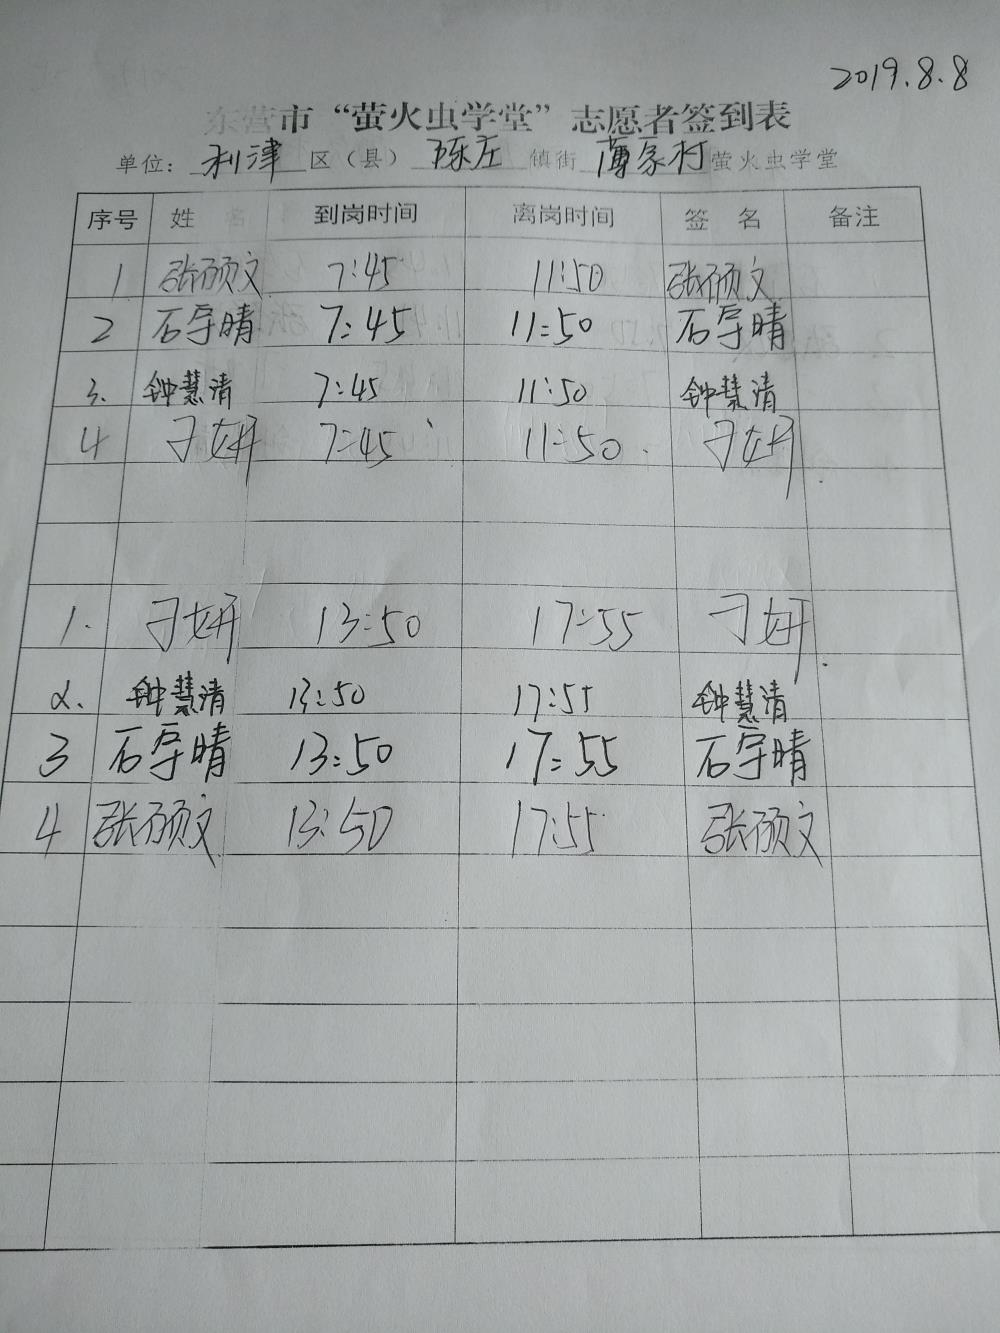 2019.8.8
东营市“萤火虫学堂”志愿者签到表
单位：利津区（县）陈庄镇街薄家村萤火虫学堂
序号 姓 名 到岗时间 离岗时间 签 名 备注
1 张硕文 7:45 11:50 张硕文
2 石学晴 7:45 11:50 石学晴
3. 钟慧清 7:45 11:50 钟慧清
4 刁妍 7:45 11:50. 刁妍
1. 刁妍 13:50 17:55 刁妍
2. 钟慧清 13:50 17:55 钟慧清
3 石学晴 13:50 17:55 石学晴
4 张硕文 13:50 17:55 张硕文